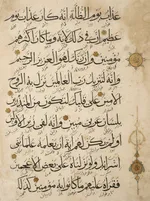 عذاب يوم الظلة انه كان عذاب يوم
عظيم ان في ذلك لاية وما كان اكثرهم
مؤمنين وان ربك لهو العزيز الرحيم
وانه لتنزيل رب العالمين نزل به الروح
الامين على قلبك لتكون من المنذرين
بلسان عربي مبين وانه لفي زبر الاولين
اولم يكن لهم اية ان يعلمه علماء بني
اسرائيل ولو نزلناه على بعض الاعجمين
فقراه عليهم ما كانوا به مؤمنين كذلك